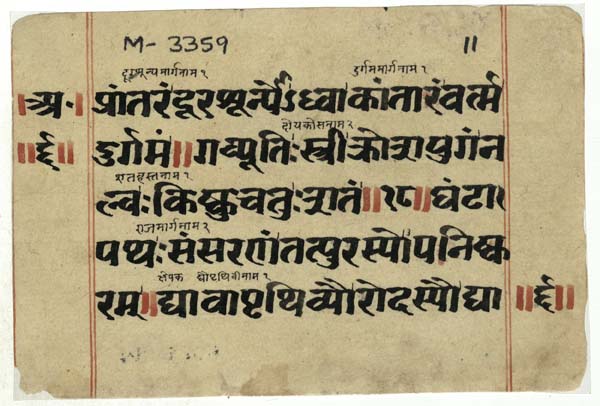 M- 3359
११
दूरशून्यमार्गनाम १ दुर्गममार्गनाम १
॥अ॰ प्रांतरंदूरशून्योऽध्वाकांतारंवर्त्म
दोयकोसनाम २
दुर्गमं॥गव्यूतिःस्त्रीक्रोशयुगंन
शतहस्तनाम १
ल्वःकिष्कुचतुःशतं॥१८॥घंटा
राजमार्गनाम २
पथःसंसरणंतत्पुरस्योपनिष्क
क्षेपक
रम्॥द्यावापृथिव्यौरोदस्यौद्या